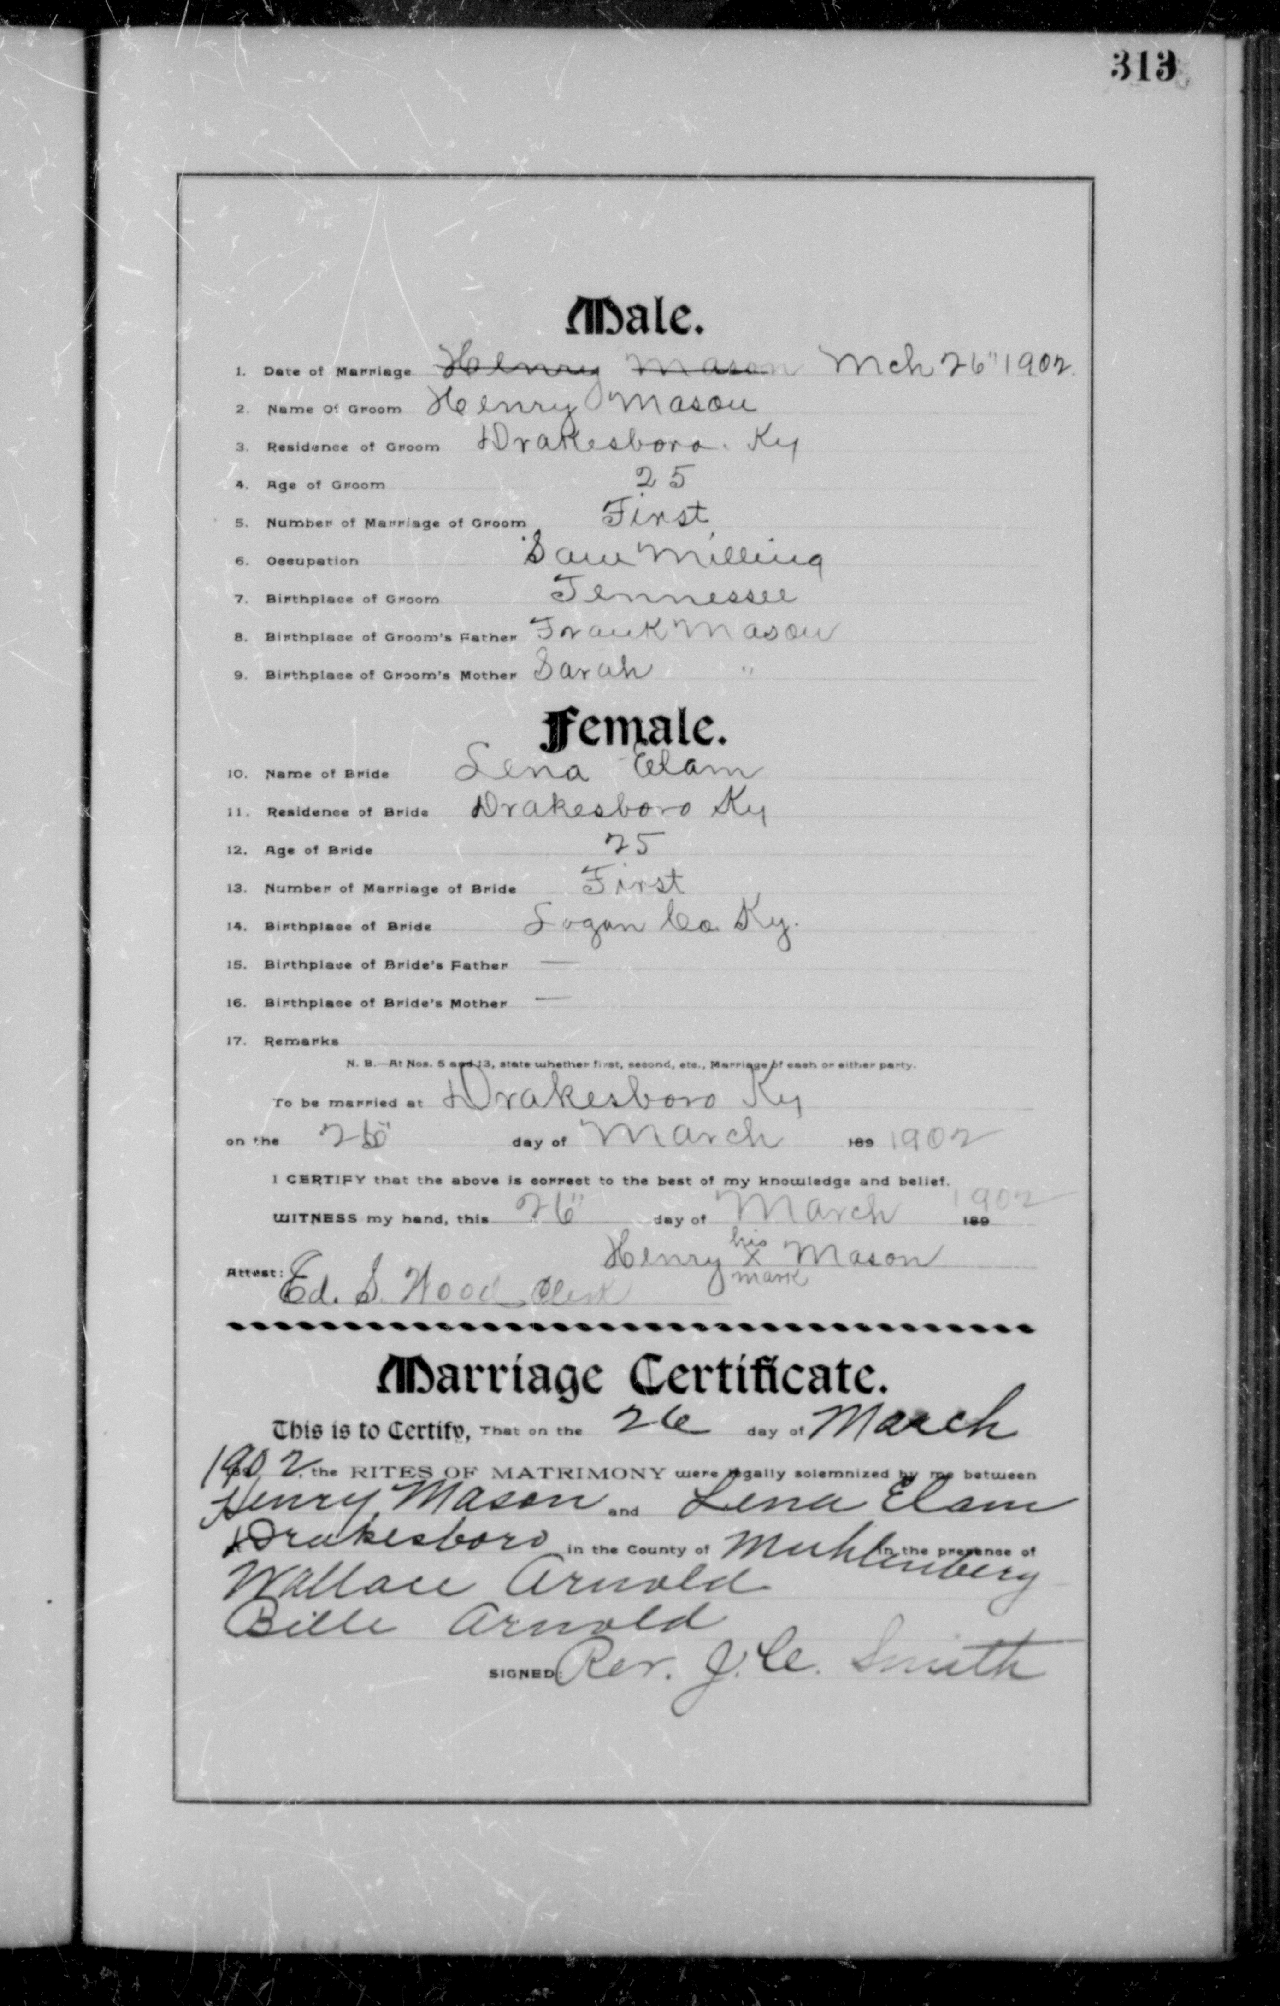 313
Male.
1. Date of Marriage Henry Mason Mch 26" 1902.
2. Name Of Groom Henry Mason
3. Residence of Groom Drakesboro. Ky
4. Age of Groom 25
5. Number of Marriage of Groom First
6. Occupation Saw Milling
7. Birthplace of Groom Tennessee
8. Birthplace of Groom's Father Frank Mason
9. Birthplace of Groom's Mother Sarah "
Female.
10. Name of Bride Lena Elam
11. Residence of Bride Drakesboro Ky
12. Age of Bride 25
13. Number of Marriage of Bride First
14. Birthplace of Bride Logan Co. Ky.
15. Birthplace of Bride's Father —
16. Birthplace of Bride's Mother —
17. Remarks
N. B.—At Nos. 5 and 13, state whether first, second, etc., Marriage of each or either party.
To be married at Drakesboro Ky
on the 26" day of March 189 1902
I CERTIFY that the above is correct to the best of my knowledge and belief.
WITNESS my hand, this 26" day of March 189 1902
Henry his x mark Mason
Attest: Ed. S. Wood Clerk
Marriage Certificate.
This is to Certify, That on the 26 day of March
1902, the RITES OF MATRIMONY were legally solemnized by me between
Henry Mason and Lena Elam
Drakesboro in the County of Muhlenberg in the presence of
Wallace Arnold
Bille Arnold
SIGNED: Rev. J. C. Smith